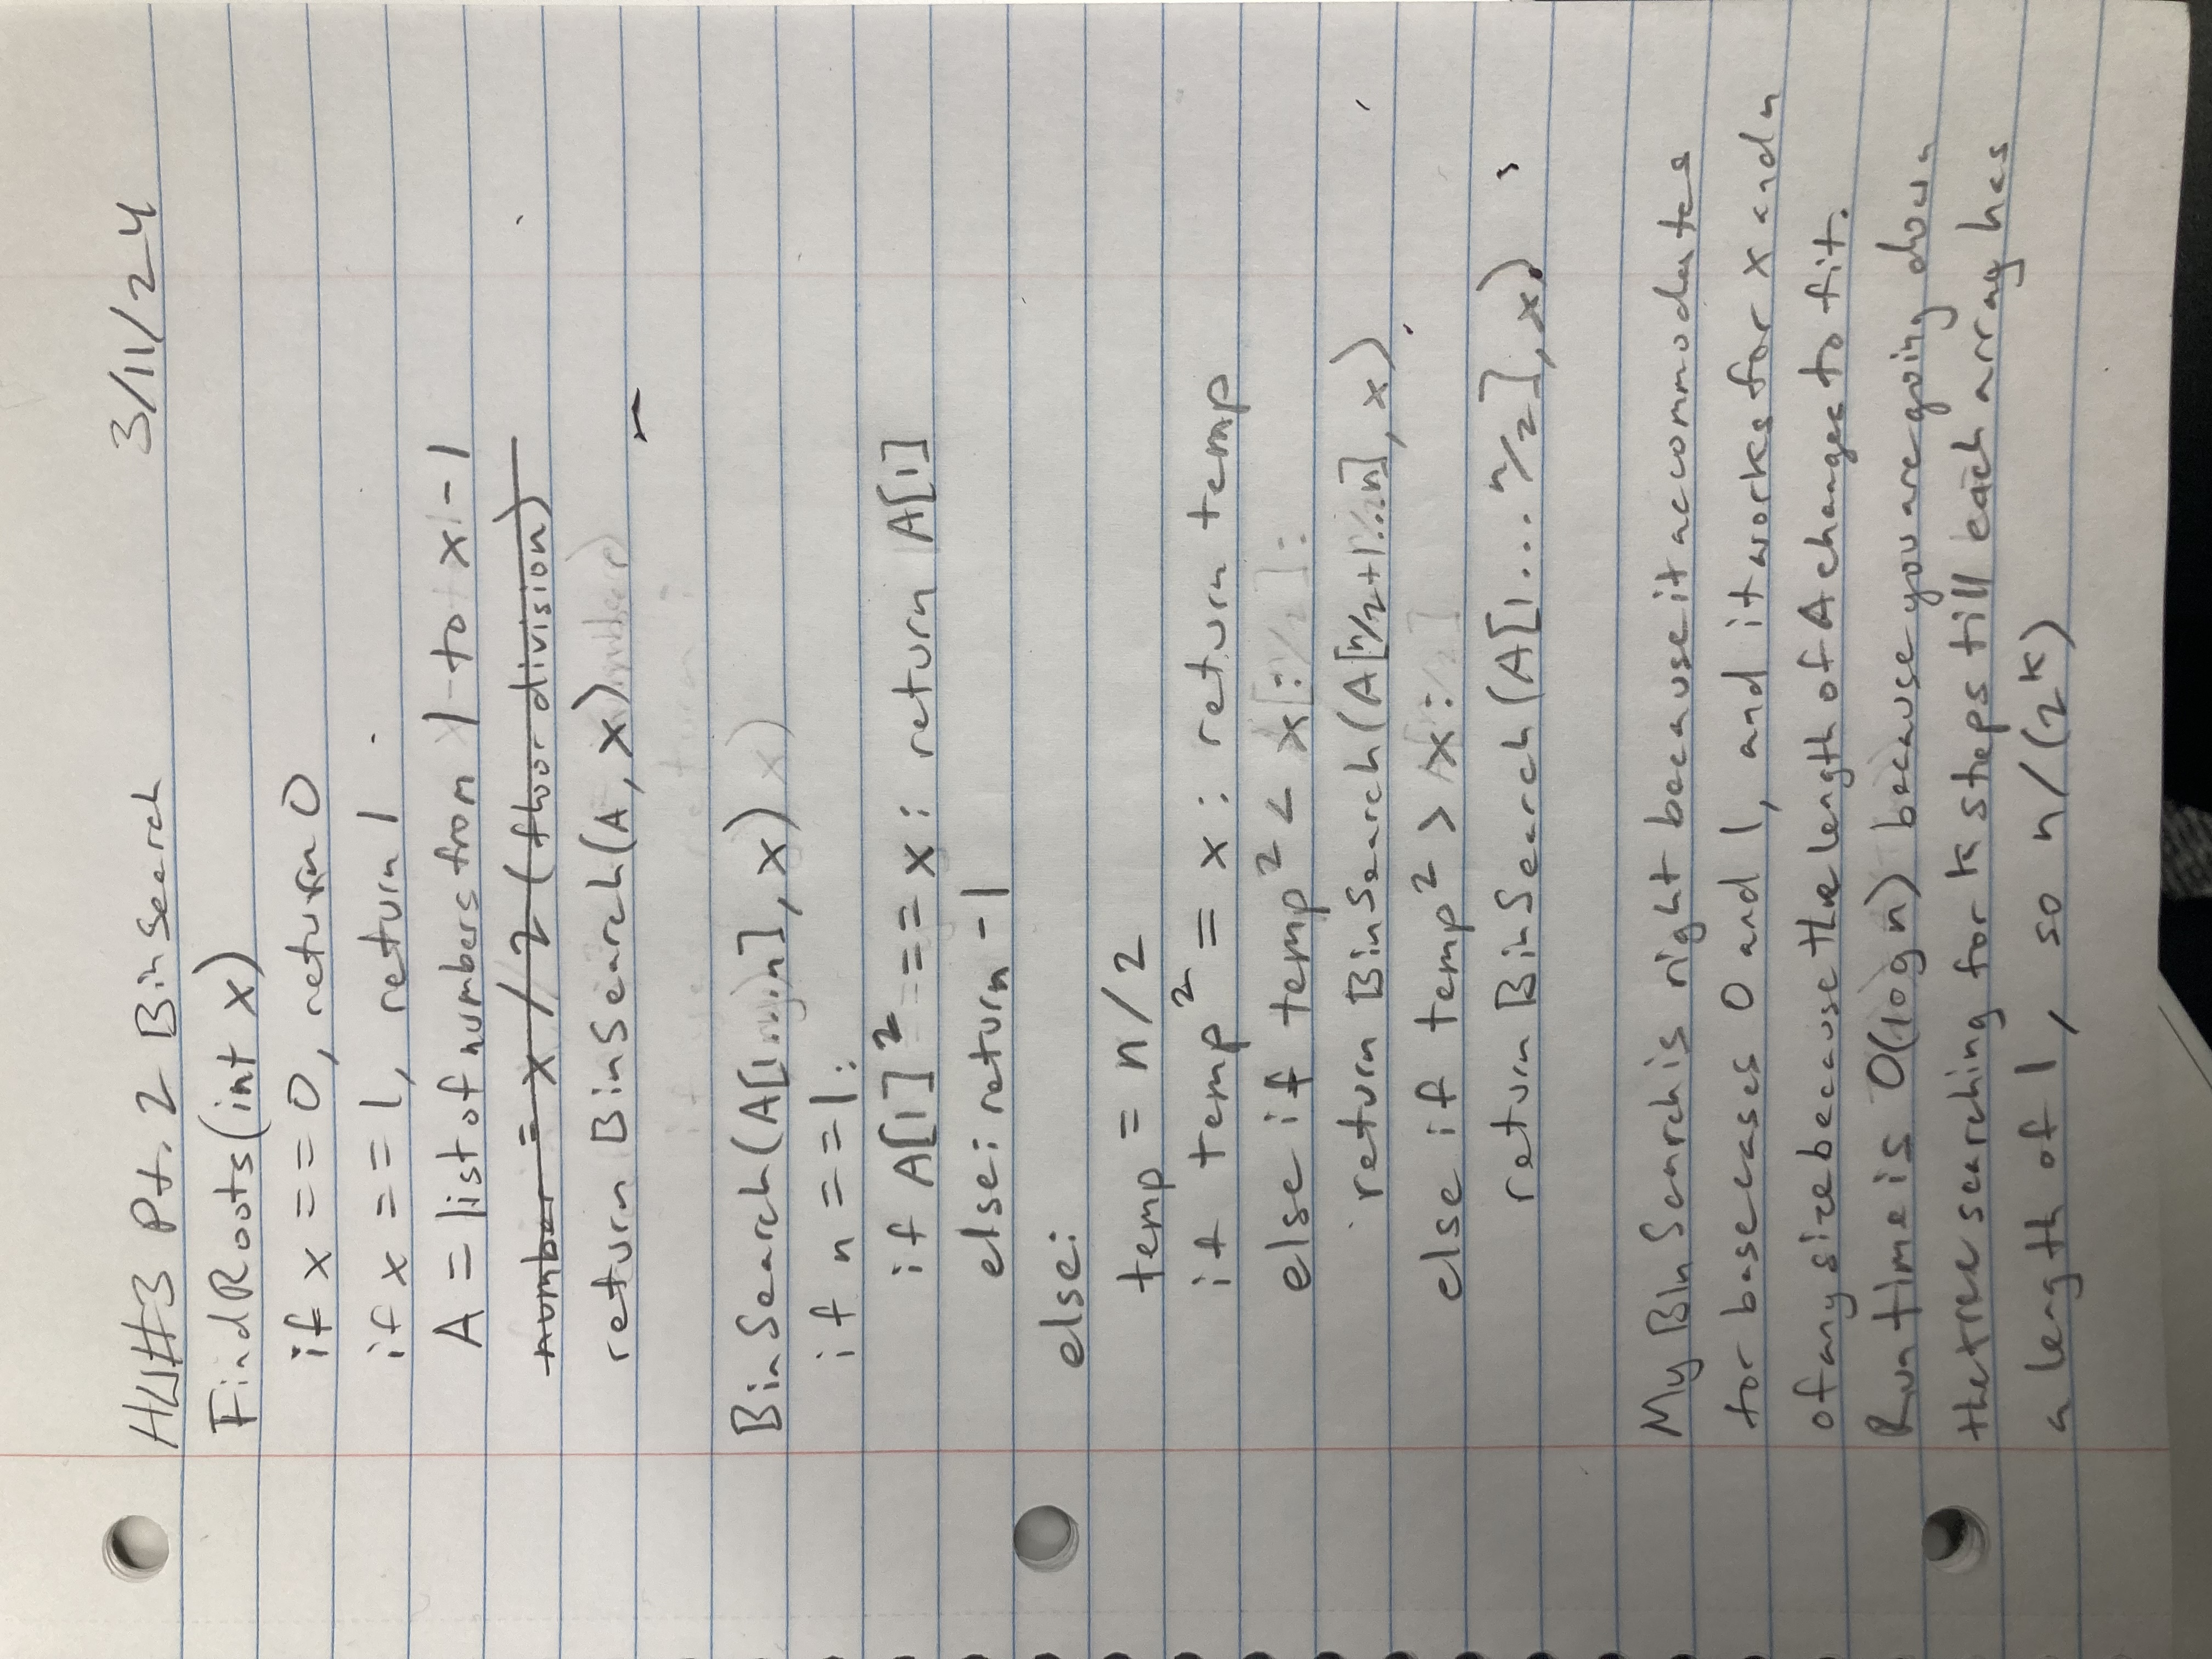 HW#3 Pt. 2 BinSearch 3/11/24
FindRoots(int x)
if x == 0, return 0
if x == 1, return 1
A = list of numbers from 1 to x - 1
number = x / 2 (floor division)
return BinSearch(A, x)
BinSearch(A[1...n], x)
if n == 1:
if A[1]² == x: return A[1]
else: return -1
else:
temp = n/2
if temp² = x: return temp
else if temp² < x:
return BinSearch(A[n/2+1...n], x)
else if temp² > x:
return BinSearch(A[1...n/2], x)
My BinSearch is right because it accommodates
for base cases 0 and 1, and it works for x and n
of any size because the length of A changes to fit.
Runtime is O(log n) because you are going down
the tree searching for k steps till each array has
a length of 1, so n/(2ᵏ)